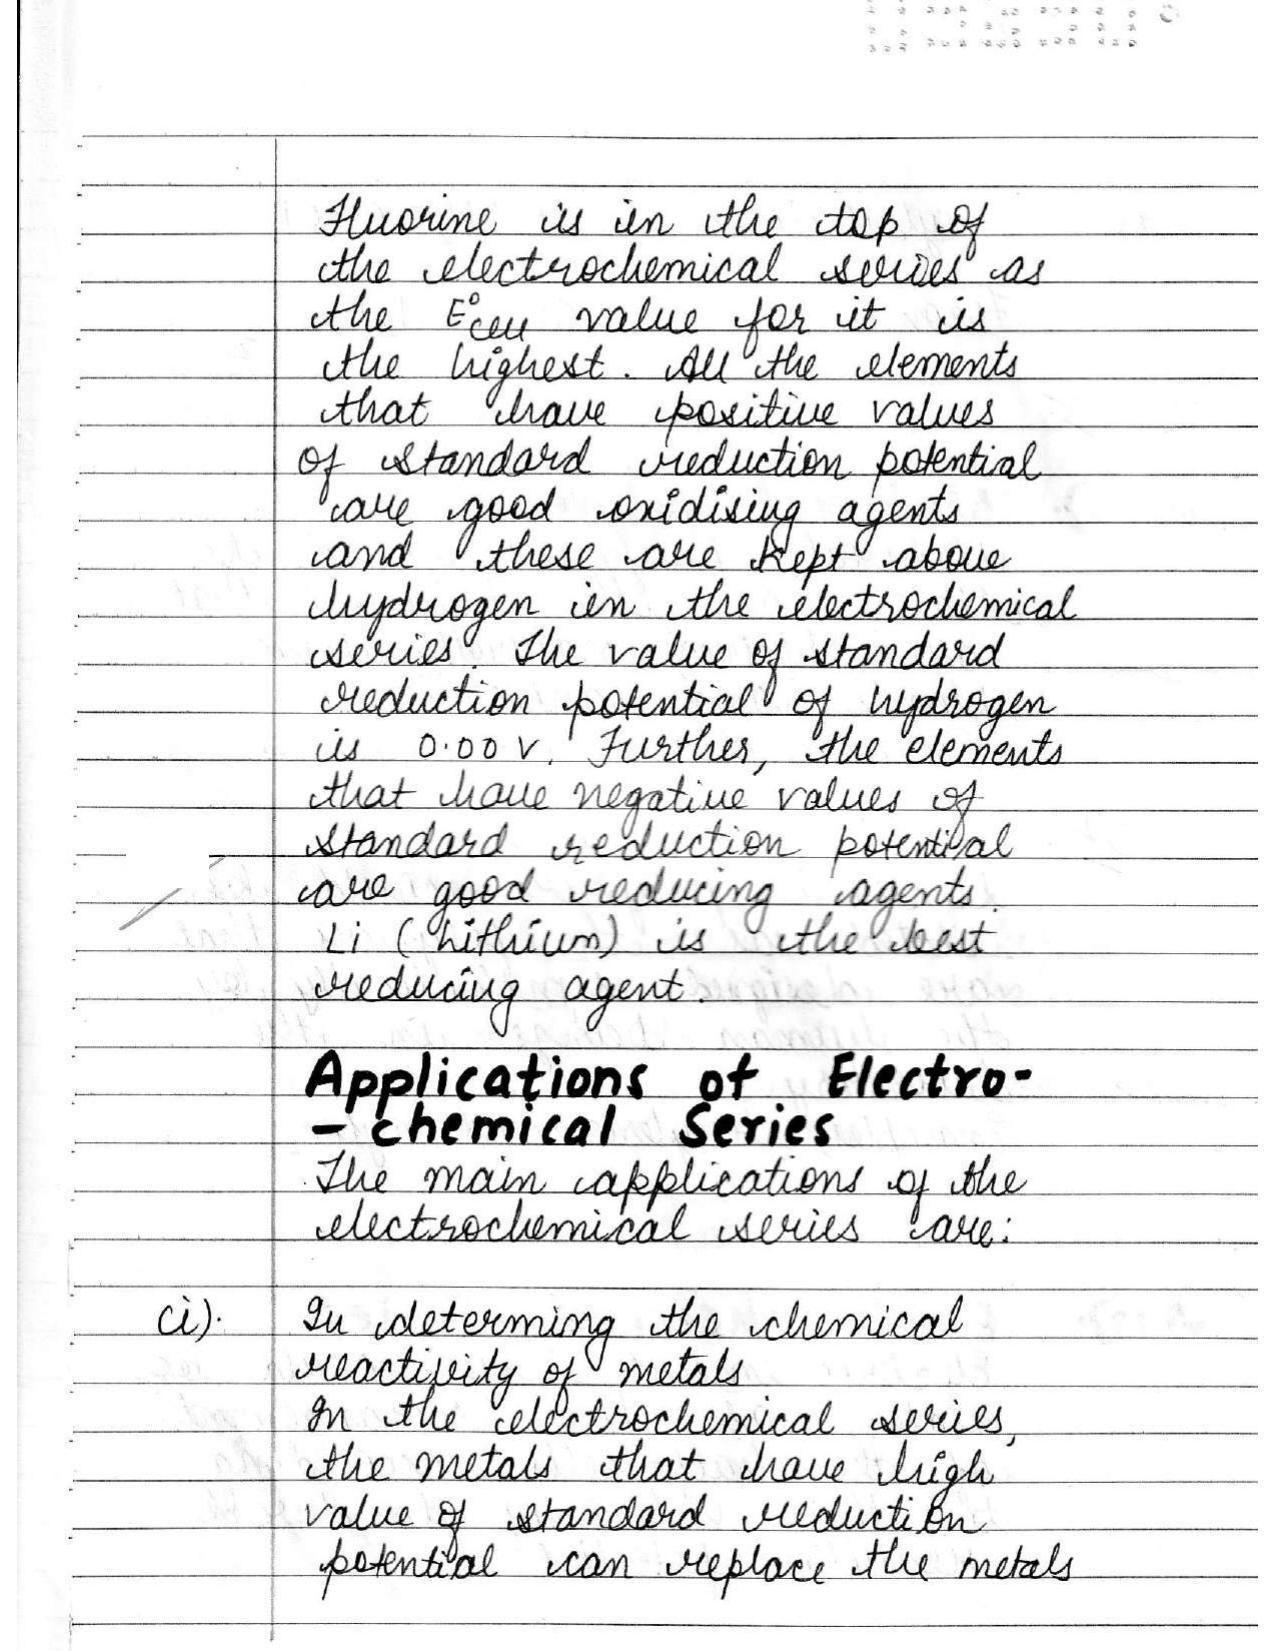 Fluorine is in the top of
the electrochemical series as
the E°cell value for it is
the highest. All the elements
that have positive values
of standard reduction potential
are good oxidising agents
and these are kept above
hydrogen in the electrochemical
series. The value of standard
reduction potential of hydrogen
is 0.00 V. Further, the elements
that have negative values of
standard reduction potential
are good reducing agents.
Li (Lithium) is the best
reducing agent.
Applications of Electro-
- chemical Series
The main applications of the
electrochemical series are:
(i). In determining the chemical
reactivity of metals
In the electrochemical series,
the metals that have high
value of standard reduction
potential can replace the metals